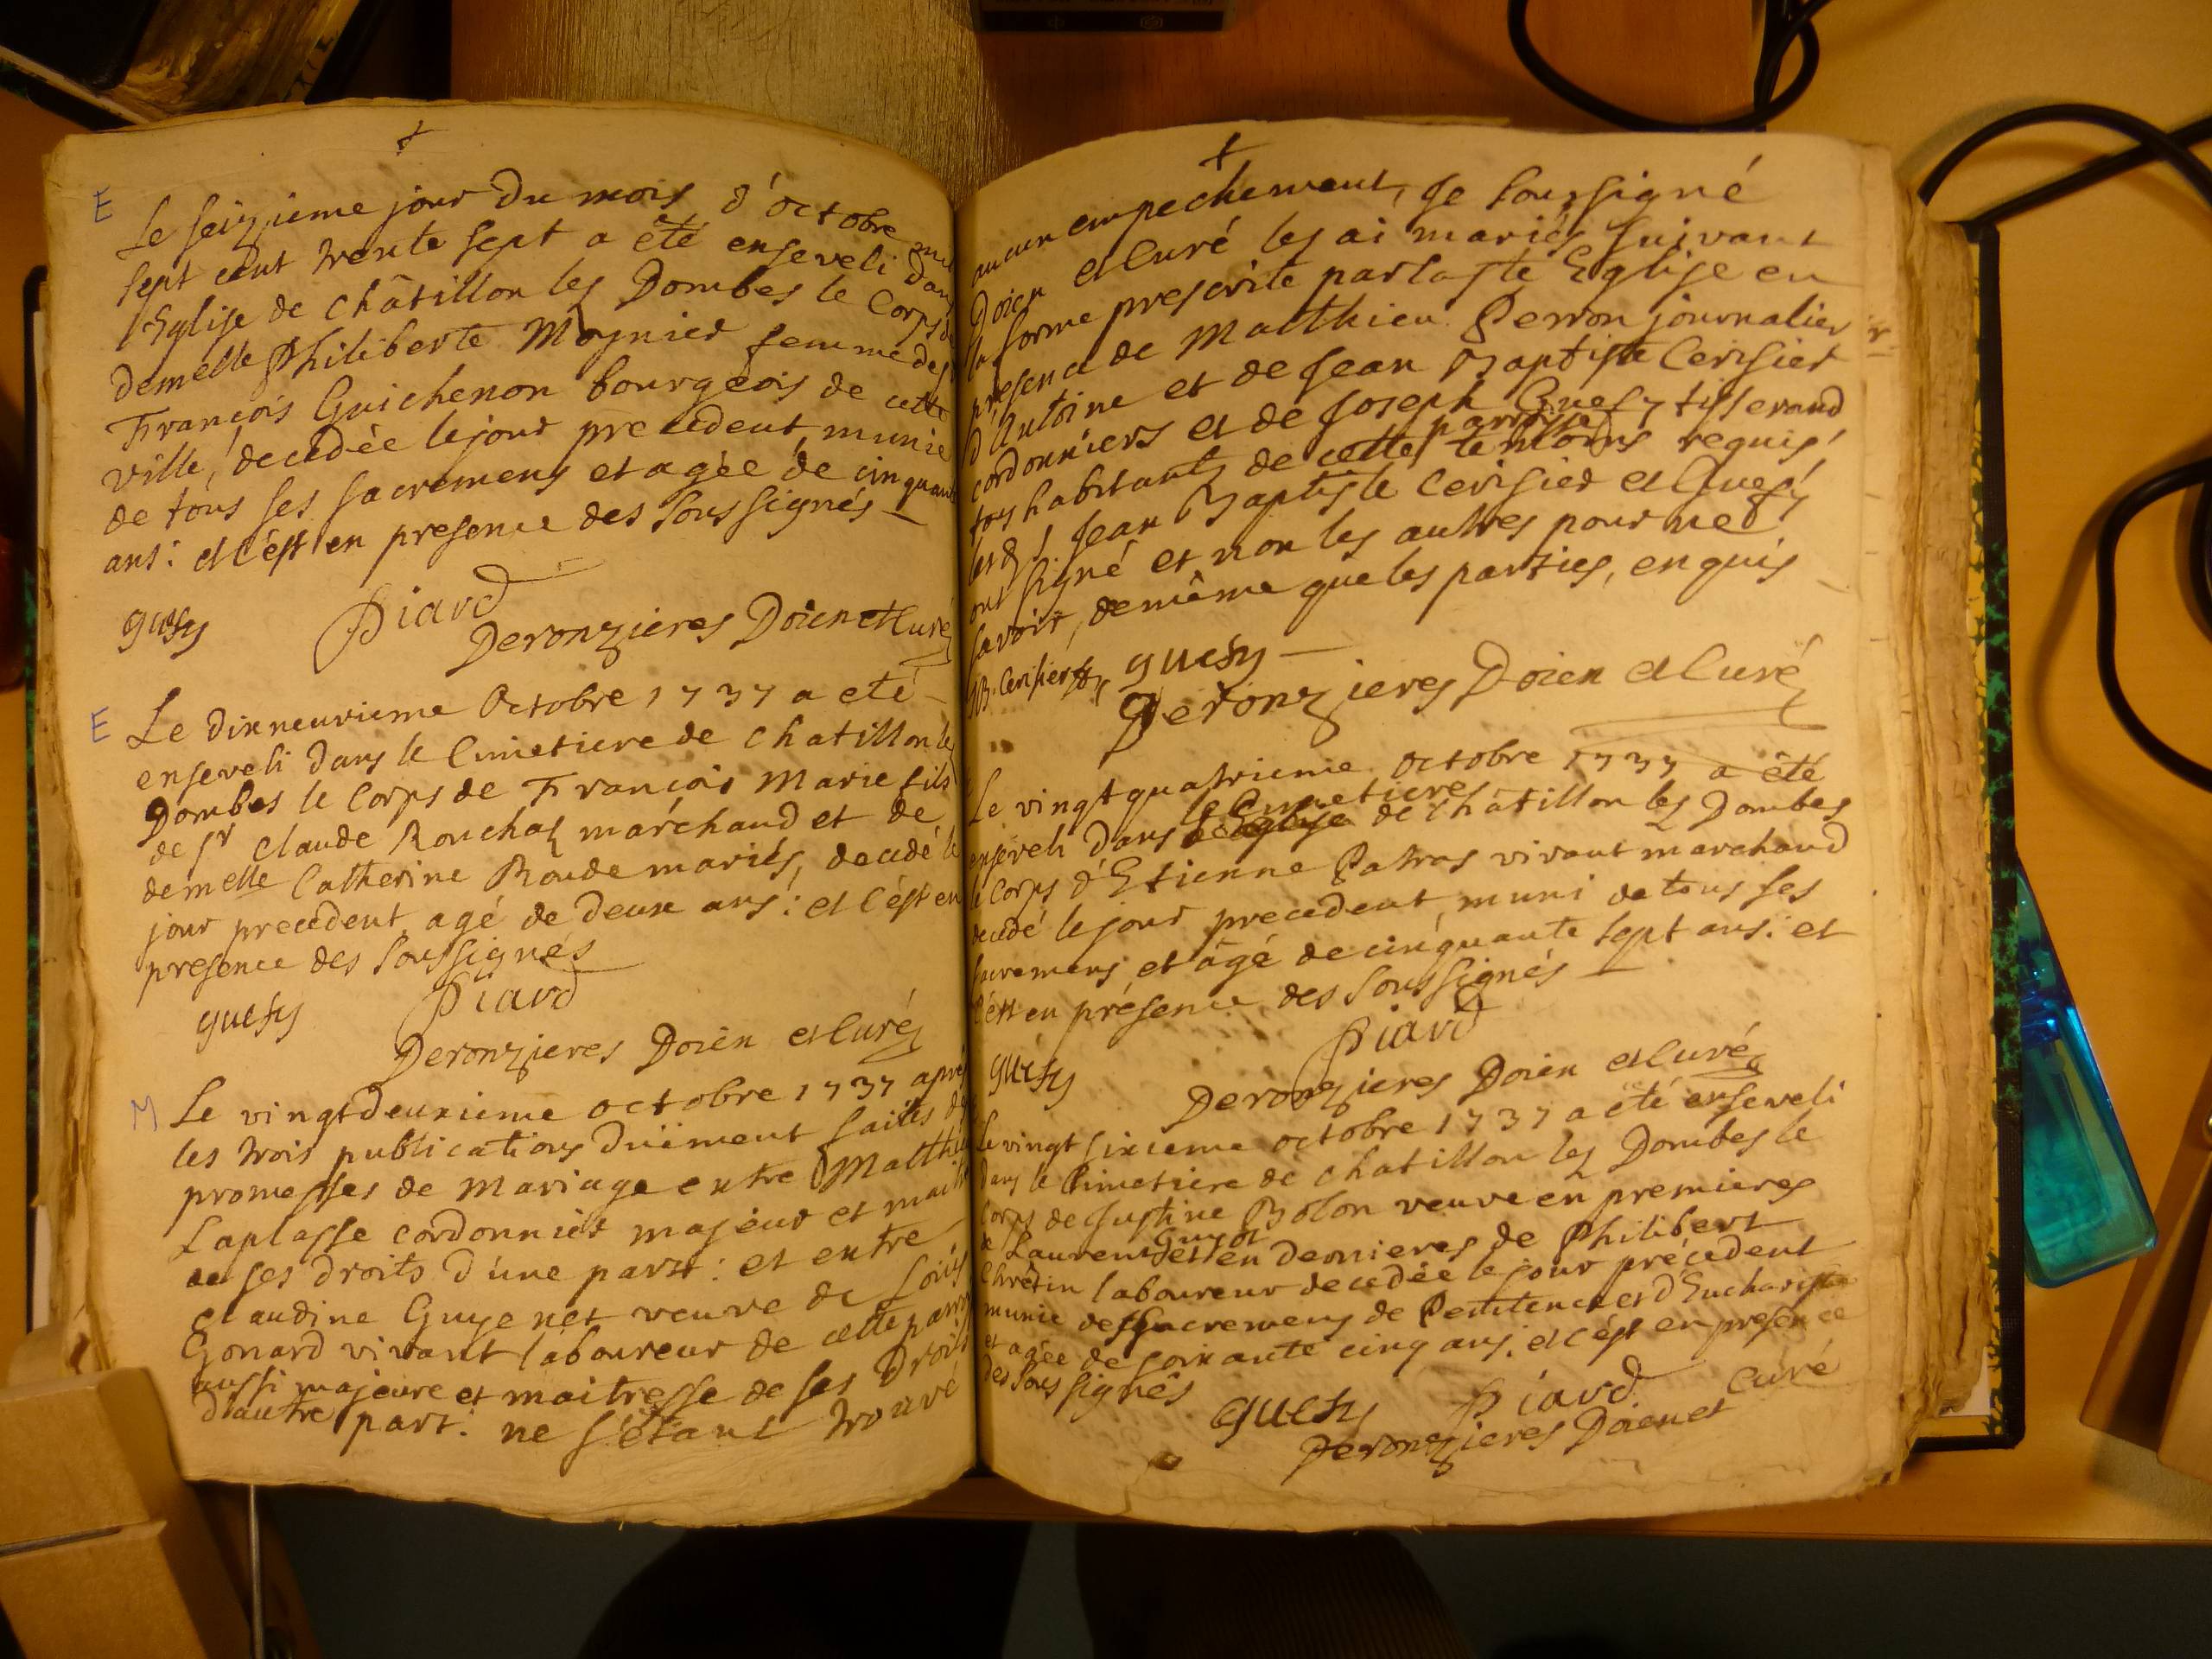 E
Le seizieme jour du mois d'octobre mil
sept cent trente sept a été enseveli dans
l'Eglise de châtillon les Dombes le Corps de
demelle Philiberte Moynier femme de sr
François Guichenon bourgeois de cette
ville, decedée le jour precedent, munie
de tous ses sacremens et agée de cinquante
ans: et c'est en presence des soussignés
guesy Piard
Deronzieres Doien et Curé
E
Le dixneuvieme Octobre 1737 a eté
enseveli dans le Cimetiere de chatillon les
Dombes le Corps de François Marie fils
de sr Claude Rouchaz marchand et de
demelle Catherine Roude mariés, decedé le
jour precedent, agé de deux ans: et c'est en
presence des soussignés
guesy Piard
Deronzieres Doien et Curé
M
Le vingtdeuxieme octobre 1737 après
les trois publications düement faites des
promesses de Mariage entre Matthieu
Laplasse cordonnier majeur et maitre
de ses droits d'une part: et entre
Claudine Guyenet veuve de Loüis
Gonard vivant laboureur de cette paroisse
aussi majeure et maitresse de ses droits
d'autre part: ne s'étant trouvé
aucun empechement, Je soussigné
Doien et Curé les ai mariés suivant
la forme prescrite par la Ste Eglise en
presence de Matthieu Perron journalier
d'Antoine et de Jean Baptiste Cerisier
cordonniers et de Joseph Guesy tisserand
paroisse
tous habitants de cette temoins requis,
lesds. Jean Baptiste Cerisier et Guesy
ont signé et non les autres pour ne
savoir, de même que les parties, enquis
JB. Cerisier guesy
Deronzieres Doien et Curé
Le vingt quatrieme octobre 1737 a été
le Cimetiere
enseveli dans l'Eglise de Châtillon les Dombes
le Corps d'Etienne Patras vivant marchand
decedé le jour precedent, muni de tous ses
sacremens et âgé de cinquante sept ans: et
c'est en présence des soussignés
guesy Piard
Deronzieres Doien et Curé
Le vingt sixieme octobre 1737 a été enseveli
dans le Cimetiere de chatillon les Dombes le
corps de Justine Bolon veuve en premieres
Guyot
de Laurent et en dernieres de Philibert
Chrêtin laboureur decedée le jour précedent
munie des sacremens de Penitence et d'Eucharistie
et agée de soixante cinq ans. et c'est en presence
des soussignés
guesy Piard
Deronzieres Doien et Curé